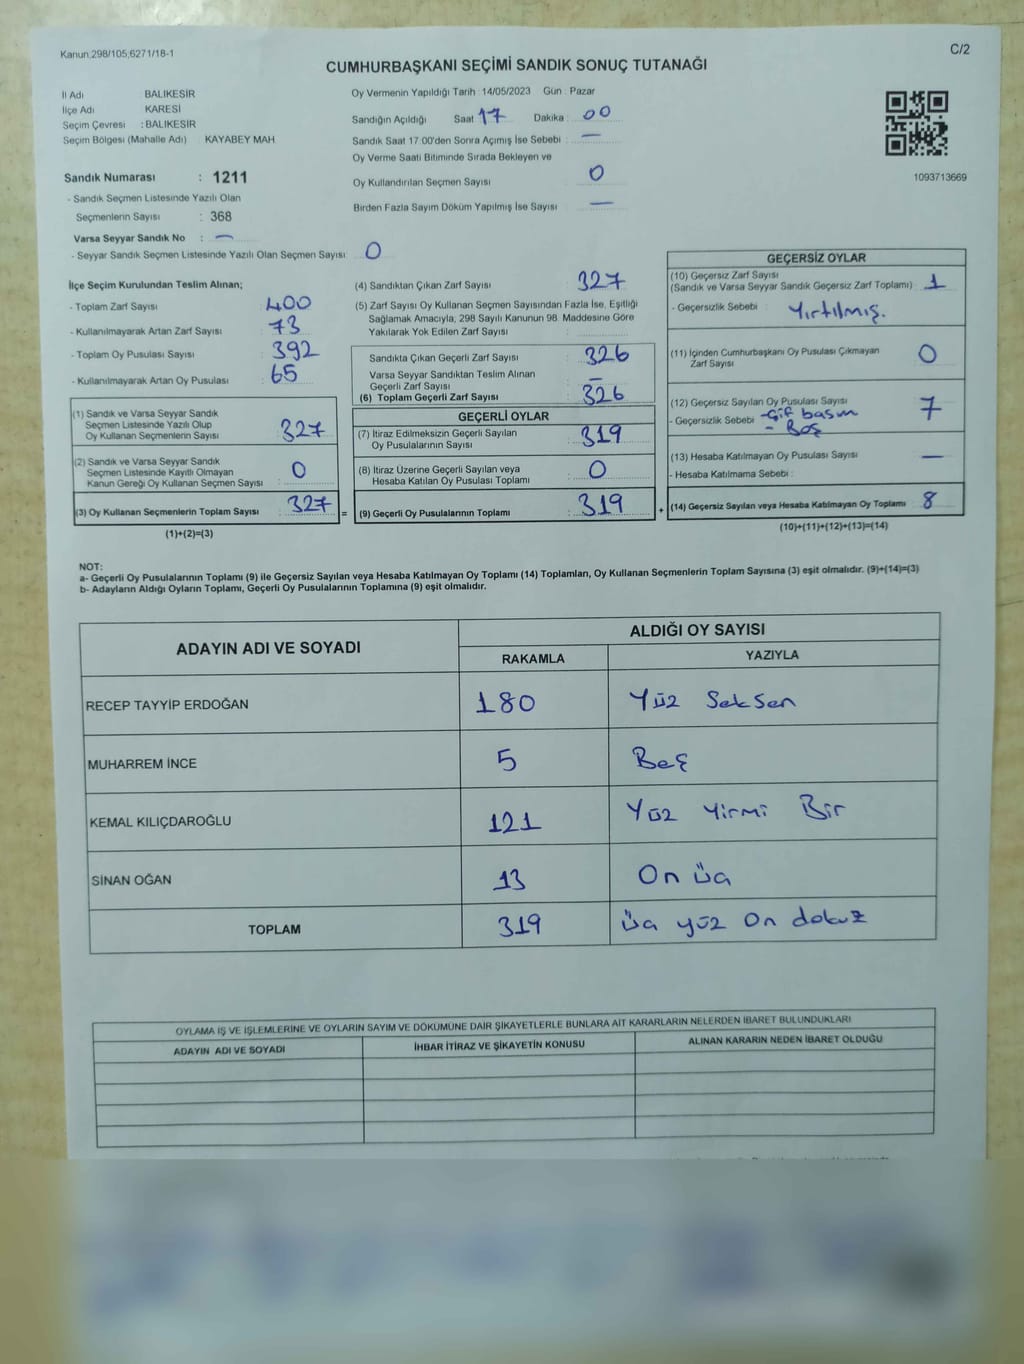 Kanun 298/105,6271/18-1
C/2
CUMHURBAŞKANI SEÇİMİ SANDIK SONUÇ TUTANAĞI
İl Adı BALIKESİR
İlçe Adı KARESİ
Seçim Çevresi : BALIKESİR
Seçim Bölgesi (Mahalle Adı) KAYABEY MAH
Oy Vermenin Yapıldığı Tarih : 14/05/2023 Gün : Pazar
Sandığın Açıldığı Saat 17 Dakika : 00
Sandık Saat 17:00'den Sonra Açımış İse Sebebi : —
Oy Verme Saati Bitiminde Sırada Bekleyen ve
Oy Kullandırılan Seçmen Sayısı : 0
Birden Fazla Sayım Döküm Yapılmış İse Sayısı : —
1093713669
Sandık Numarası : 1211
- Sandık Seçmen Listesinde Yazılı Olan
Seçmenlerin Sayısı : 368
Varsa Seyyar Sandık No : —
- Seyyar Sandık Seçmen Listesinde Yazılı Olan Seçmen Sayısı: 0
İlçe Seçim Kurulundan Teslim Alınan;
- Toplam Zarf Sayısı : 400
- Kullanılmayarak Artan Zarf Sayısı : 73
- Toplam Oy Pusulası Sayısı : 392
- Kullanılmayarak Artan Oy Pusulası : 65
(1) Sandık ve Varsa Seyyar Sandık
Seçmen Listesinde Yazılı Olup
Oy Kullanan Seçmenlerin Sayısı : 327
(2) Sandık ve Varsa Seyyar Sandık
Seçmen Listesinde Kayıtlı Olmayan
Kanun Gereği Oy Kullanan Seçmen Sayısı : 0
(3) Oy Kullanan Seçmenlerin Toplam Sayısı : 327 =
(1)+(2)=(3)
(4) Sandıktan Çıkan Zarf Sayısı : 327
(5) Zarf Sayısı Oy Kullanan Seçmen Sayısından Fazla İse, Eşitliği
Sağlamak Amacıyla, 298 Sayılı Kanunun 98. Maddesine Göre
Yakılarak Yok Edilen Zarf Sayısı :
Sandıkta Çıkan Geçerli Zarf Sayısı : 326
Varsa Seyyar Sandıktan Teslim Alınan
Geçerli Zarf Sayısı : —
(6) Toplam Geçerli Zarf Sayısı : 326
GEÇERLİ OYLAR
(7) İtiraz Edilmeksizin Geçerli Sayılan
Oy Pusulalarının Sayısı : 319
(8) İtiraz Üzerine Geçerli Sayılan veya
Hesaba Katılan Oy Pusulası Toplamı : 0
(9) Geçerli Oy Pusulalarının Toplamı : 319 +
GEÇERSİZ OYLAR
(10) Geçersiz Zarf Sayısı
(Sandık ve Varsa Seyyar Sandık Geçersiz Zarf Toplamı) : 1
- Geçersizlik Sebebi : Yırtılmış.
(11) İçinden Cumhurbaşkanı Oy Pusulası Çıkmayan
Zarf Sayısı : 0
(12) Geçersiz Sayılan Oy Pusulası Sayısı : 7
- Geçersizlik Sebebi - Çif basım
- Boş
(13) Hesaba Katılmayan Oy Pusulası Sayısı : —
- Hesaba Katılmama Sebebi :
(14) Geçersiz Sayılan veya Hesaba Katılmayan Oy Toplamı : 8
(10)+(11)+(12)+(13)=(14)
NOT:
a- Geçerli Oy Pusulalarının Toplamı (9) ile Geçersiz Sayılan veya Hesaba Katılmayan Oy Toplamı (14) Toplamları, Oy Kullanan Seçmenlerin Toplam Sayısına (3) eşit olmalıdır. (9)+(14)=(3)
b- Adayların Aldığı Oyların Toplamı, Geçerli Oy Pusulalarının Toplamına (9) eşit olmalıdır.
ADAYIN ADI VE SOYADI ALDIĞI OY SAYISI
RAKAMLA YAZIYLA
RECEP TAYYİP ERDOĞAN 180 Yüz Seksen
MUHARREM İNCE 5 Beş
KEMAL KILIÇDAROĞLU 121 Yüz Yirmi Bir
SİNAN OĞAN 13 On üç
TOPLAM 319 üç yüz On dokuz
OYLAMA İŞ VE İŞLEMLERİNE VE OYLARIN SAYIM VE DÖKÜMÜNE DAİR ŞİKAYETLERLE BUNLARA AİT KARARLARIN NELERDEN İBARET BULUNDUKLARI
ADAYIN ADI VE SOYADI İHBAR İTİRAZ VE ŞİKAYETİN KONUSU ALINAN KARARIN NEDEN İBARET OLDUĞU